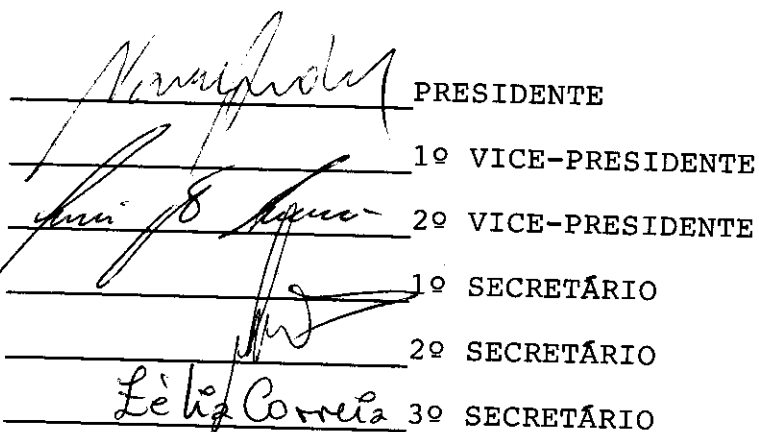 PRESIDENTE
1º VICE-PRESIDENTE
2º VICE-PRESIDENTE
1º SECRETÁRIO
2º SECRETÁRIO
Lèlia Correia 3º SECRETÁRIO